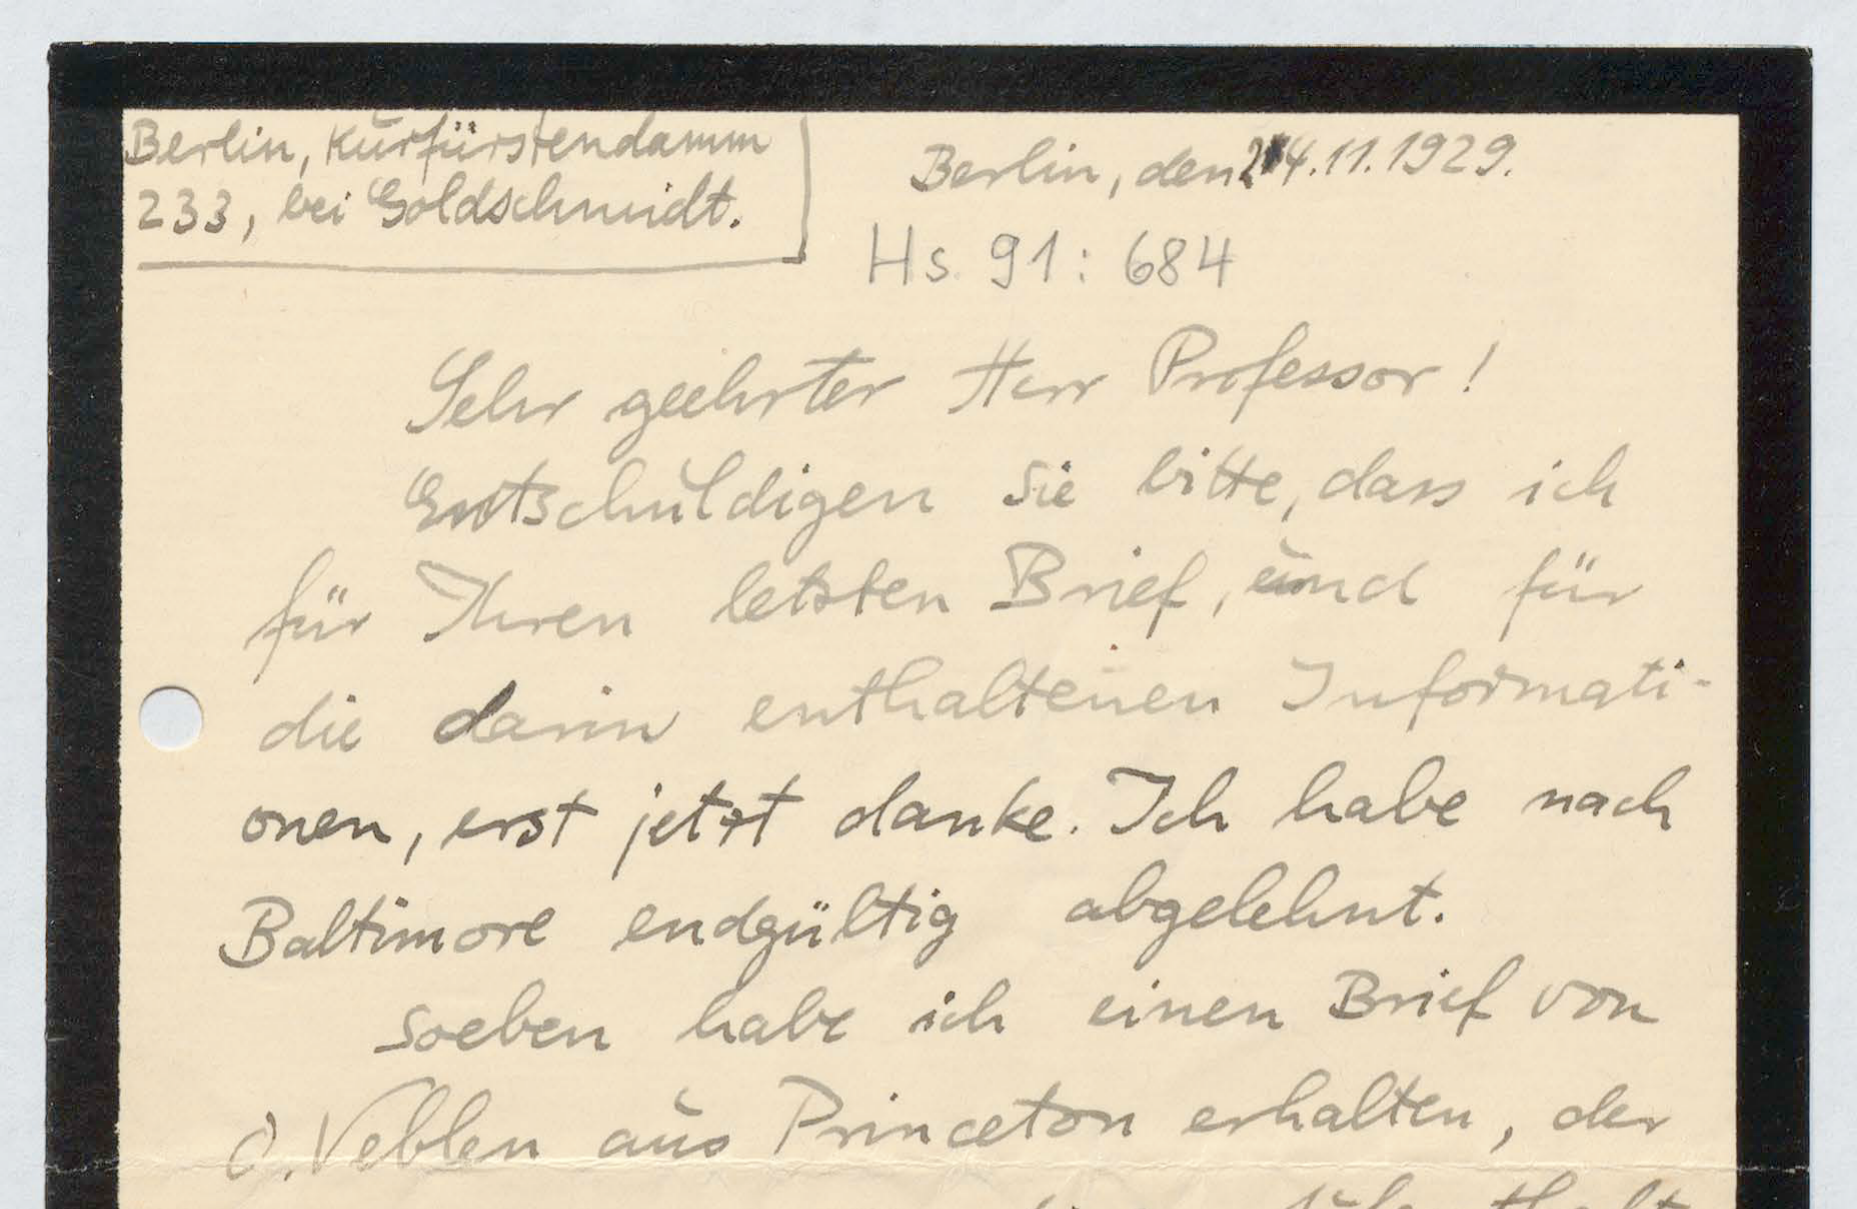 Berlin, Kurfürstendamm
233, bei Goldschmidt.
Berlin, den 24.11.1929.
Hs. 91: 684
Sehr geehrter Herr Professor!
Entschuldigen Sie bitte, dass ich
für Ihren letzten Brief, und für
die darin enthaltenen Informati-
onen, erst jetzt danke. Ich habe nach
Baltimore endgültig abgelehnt.
Soeben habe ich einen Brief von
O. Veblen aus Princeton erhalten, der